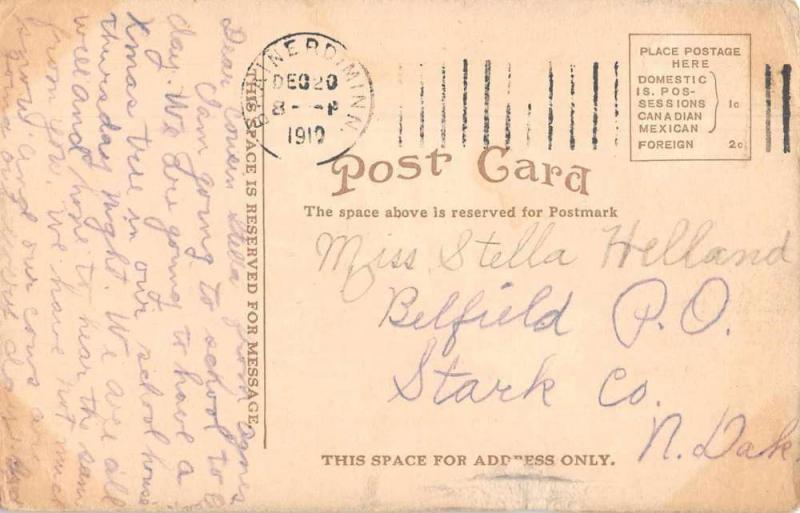 BRAINERD, MINN.
DEC 20
8 - P
1910
PLACE POSTAGE
HERE
DOMESTIC
IS. POS-
SESSIONS
CANADIAN
MEXICAN
1c
FOREIGN 2c
Post Card
The space above is reserved for Postmark
THIS SPACE IS RESERVED FOR MESSAGE
Miss Stella Helland
Belfield P.O.
Stark Co.
N. Dak.
THIS SPACE FOR ADDRESS ONLY.
Dear Cousin Stella from Agnes
I am going to school to
day. We are going to have a
Xmas tree in our school house
thursday night. We are all
well and hope to hear the same
from you. We have not much
snow and our cows are
going out every day